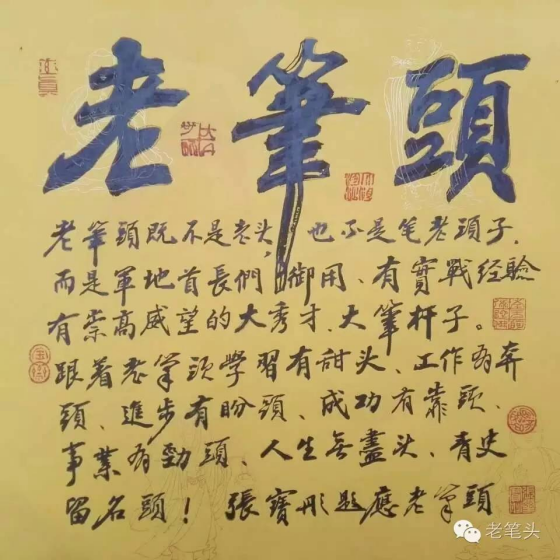 老筆頭
老筆頭既不是老头，也不是笔老頭子，
而是軍地首長們御用、有實戰经驗
有崇高威望的大秀才、大筆杆子。
跟着老筆頭学習有甜头、工作有奔
頭、進步有盼頭、成功有靠頭、
事業有勁頭、人生無盡头、青史
留名頭！ 張寶彤题應老筆頭
老笔头